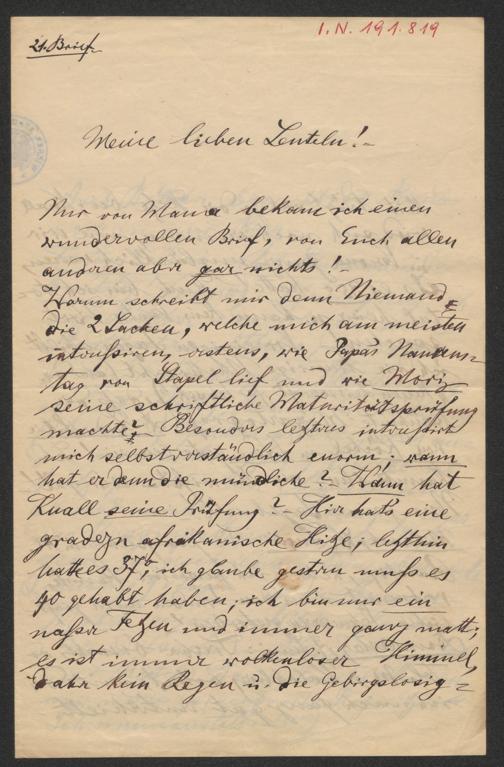 I. N. 191.819
21. Brief
Meine lieben Leuteln! -
Nur von Mama bekam ich einen
wundervollen Brief, von Euch allen
anderen aber gar nichts! -
Warum schreibt mir denn Niemand
die 2 Sachen, welche mich am meisten
intressiren, erstens, wie Papa's Namens=
tag von Stapel lief und wie Moriz
seine schriftliche Maturitätsprüfung
machte? Besonders letztres intressirt
mich selbstverständlich enorm; wann
hat er denn die mündliche? - Wann hat
Knall seine Prüfung? - Hier hat's eine
gradezu afrikanische Hitze; letzthin
hatte es 37°, ich glaube gestern muß es
40 gehabt haben; ich bin nur ein
naßer Fetzen und immer ganz matt;
es ist immer wolkenloser Himmel,
daher kein Regen u. die Gebirgslosig=